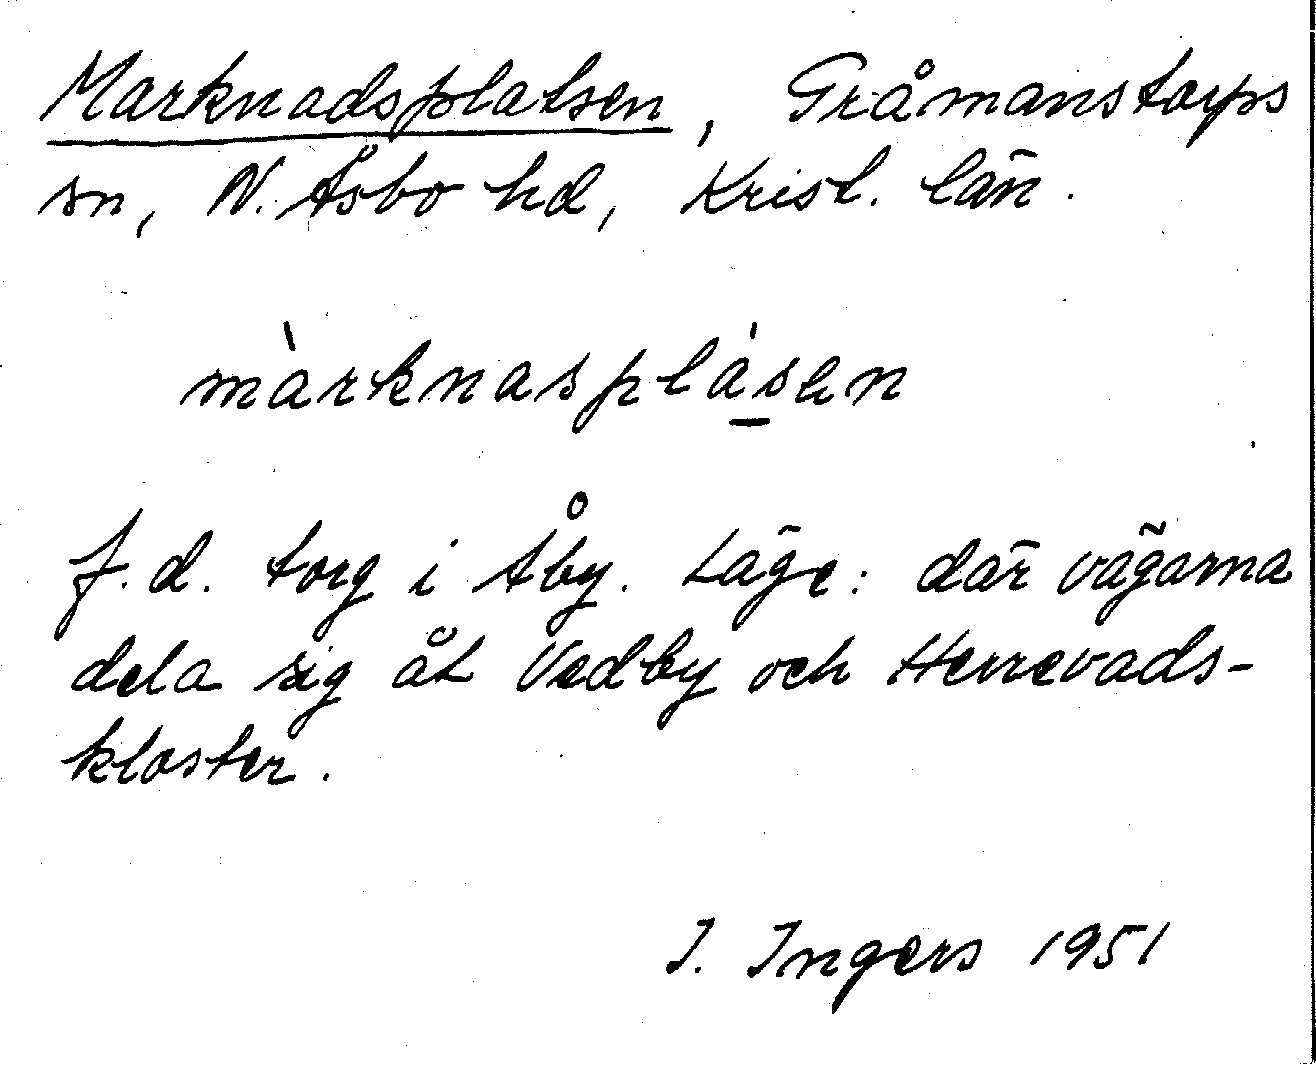 Marknadsplatsen, Gråmanstorps
sn, N. Åsbo hd, Krist. län.
màrknasplásen
f.d. torg i Åby. Läge: där vägarna
dela sig åt Vedby och Herrevads-
kloster.
I. Ingers 1951